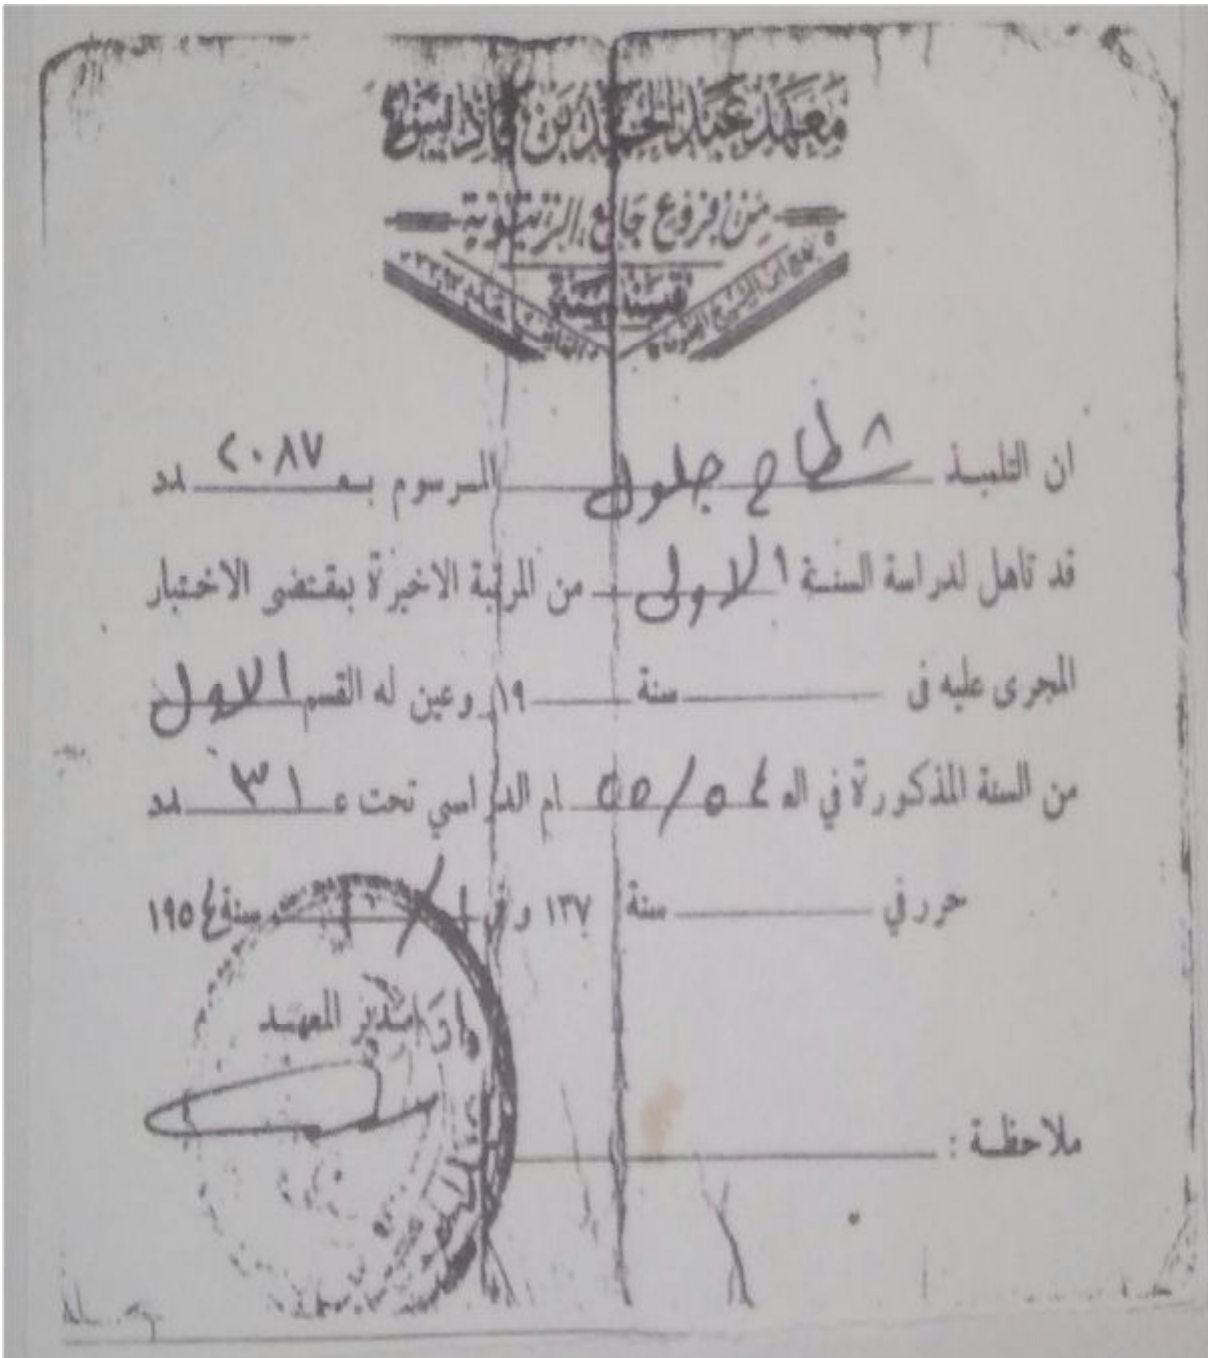 معهد عبد الحميد بن باديس
من فروع جامع الزيتونة
قسنطينة
ان التلميذ شطاح جلول المرسوم بعـ ٢٠٨٧ ـدد
قد تاهل لدراسة السنة الاولى من المرتبة الاخيرة بمقتضى الاختبار
المجرى عليه في سنة ١٩ وعين له القسم الاول
من السنة المذكورة في العـ ٥٤/٥٥ ـام الدراسي تحت عـ ٣١ ـدد
حرر في سنة ١٣٧ وفي سنة ١٩٥٤
مدير المعهد
ملاحظة :